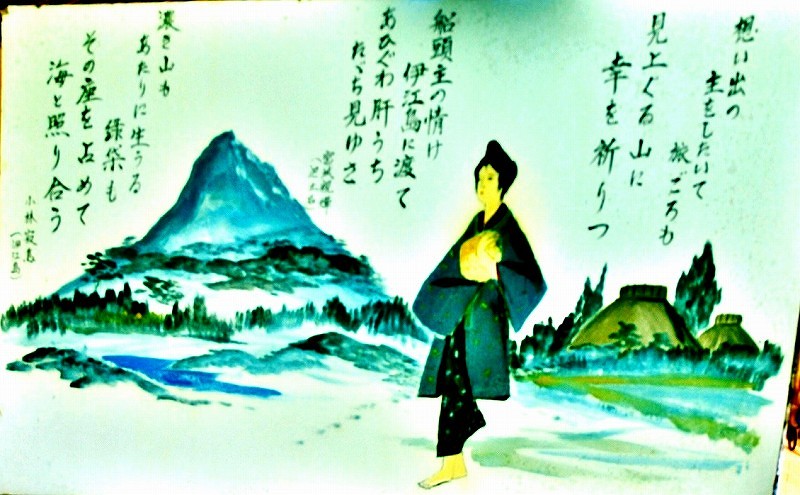 想い出の
主をしたいて
旅ごろも
見上ぐる山に
幸を祈りつ
船頭主の情け
伊江島に渡て
あひぐわ肝うち
たっち見ゆさ
濃き山も
あたりに生うる
緑葉も
その座を占めて
海と照り合う
小林寂鳥